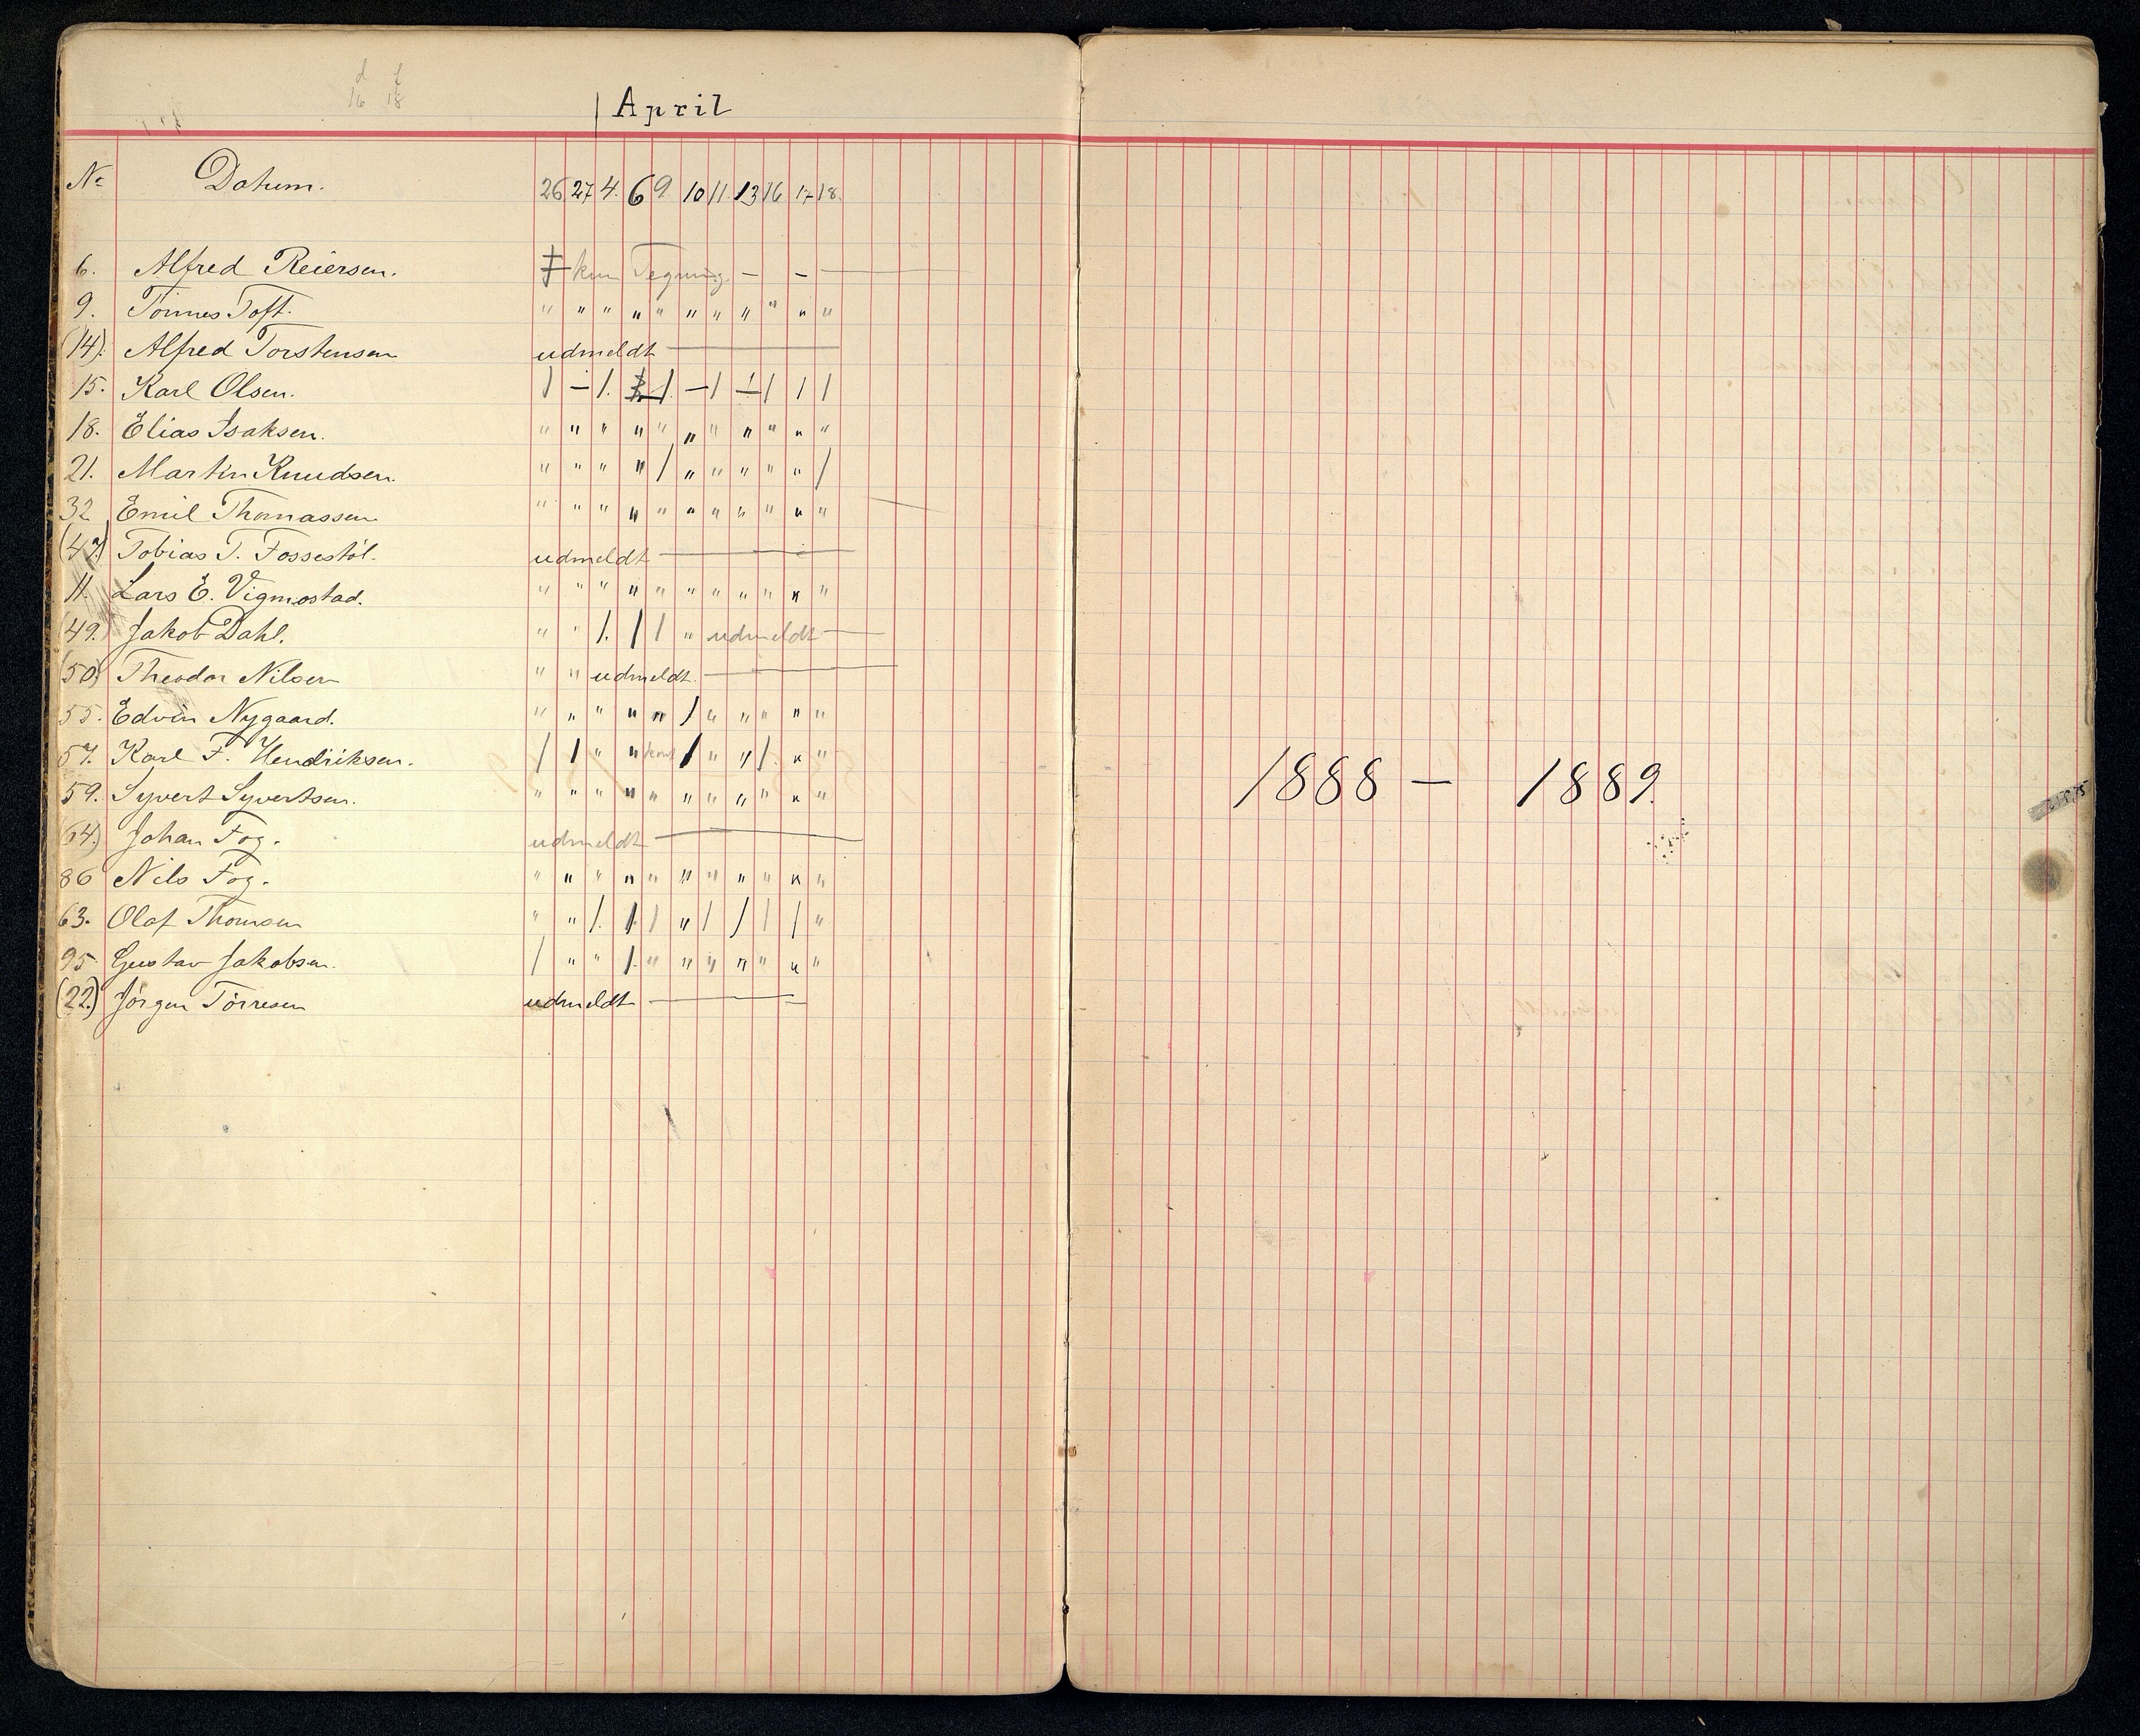 d f
16 18
April
No Datum. 26 27 4. 6 9. 10 11. 13 16 17 18.
6. Alfred Reiersen. kun Tegning — —
9. Tönnes Toft. " " " " " " " " " " "
(14). Alfred Torstensen udmeldt —
15. Karl Olsen. | — |. | — | | | |
18. Elias Isaksen. " " " " " " " " " " "
21. Martin Knudsen. " " " " / " " " " " /
32 Emil Thomassen " " " " " " " " " " "
(47) Tobias T. Fossestöl. udmeldt —
11. Lars E. Vigmostad. " " " " " " " " " " "
(49.) Jakob Dahl. " " /. / / " udmeldt —
(50) Theodor Nilsen " " udmeldt. —
55. Edvin Nygaard. " " " " " / " " " " "
57. Karl F. Hendriksen. / / " " / " " /. " "
59. Syvert Syvertsen. " " " " " " " " " " "
(64) Johan Fog. udmeldt —
86 Nils Fog. " " " " " " " " " " "
63. Olaf Thomsen " " /. /. / " / / / / "
95. Gustav Jakobsen. / " " /. " " " " " " "
(22.) Jörgen Törresen udmeldt —
1888 — 1889.